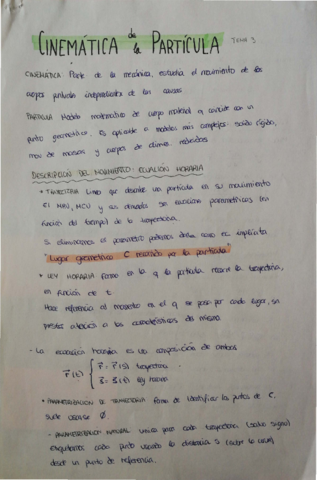 CINEMÁTICA de la PARTÍCULA TEMA 3
CINEMÁTICA Parte de la mecánica, estudia el movimiento de los
cuerpos independientemente de las causas.
PARTÍCULA Modelo matemático de cuerpo material q coincide con un
punto geométrico. Es aplicable a modelos más complejos: sólido rígido,
de masas y cuerpos de dimen. reducidas
DESCRIPCIÓN DEL MOVIMIENTO: ECUACIÓN HORARIA
• TRAYECTORIA Línea que describe una partícula en su movimiento
El MRU, MCU y son ecuaciones paramétricas en
función del tiempo de la trayectoria.
Si eliminamos el parámetro podemos ec. implícita.
"Lugar geométrico C recorrido por la partícula"
• LEY HORARIA Forma en la q la partícula recorre la trayectoria,
en función de t.
Hace referencia al momento en el q se pasa por cada lugar, sin
prestar atención a las características del mismo.
- La ecuación horaria es una composición de ambas
r⃗(t) { r⃗ = r⃗(s) trayectoria
s = s(t) ley horaria
• PARAMETRIZACIÓN DE TRAYECTORIA Forma de identificar los puntos de C,
suele usarse
- PARAMETRIZACIÓN NATURAL única para cada trayectoria (salvo signo)
Etiquetamos cada punto usando la distancia s (sobre la curva)
desde un punto de referencia.